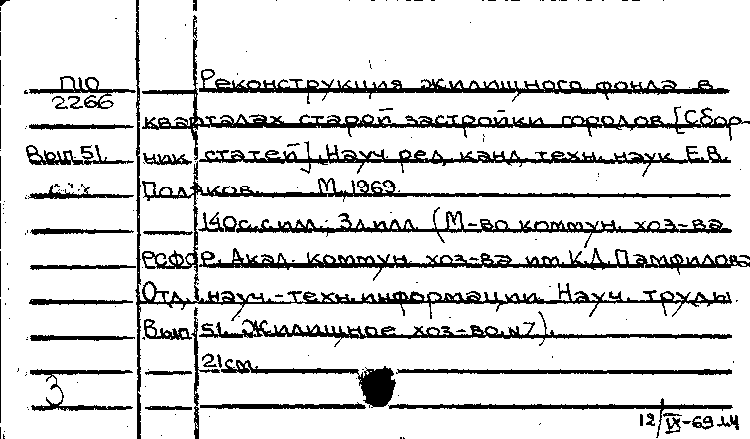 П10
2266
Вып. 51.
Реконструкция жилищного фонда в
кварталах старой застройки городов [Сбор-
ник статей]. Науч. ред. канд. техн. наук Е.В.
Поляков. М., 1969.
140 с. с илл.; 3 л. илл. (М-во коммун. хоз-ва
РСФСР. Акад. коммун. хоз-ва им. К.Д. Памфилова
Отд. науч.-техн. информации. Науч. труды
Вып. 51. Жилищное хоз-во. №7).
21 см.
3
12/IX-69